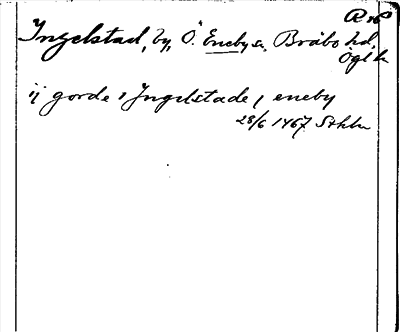 Ingelstad, by, Ö. Eneby sn, Bråbo hd,
Ögl
ij gorde i Ingelstade i eneby
28/6 1467 Sthlm